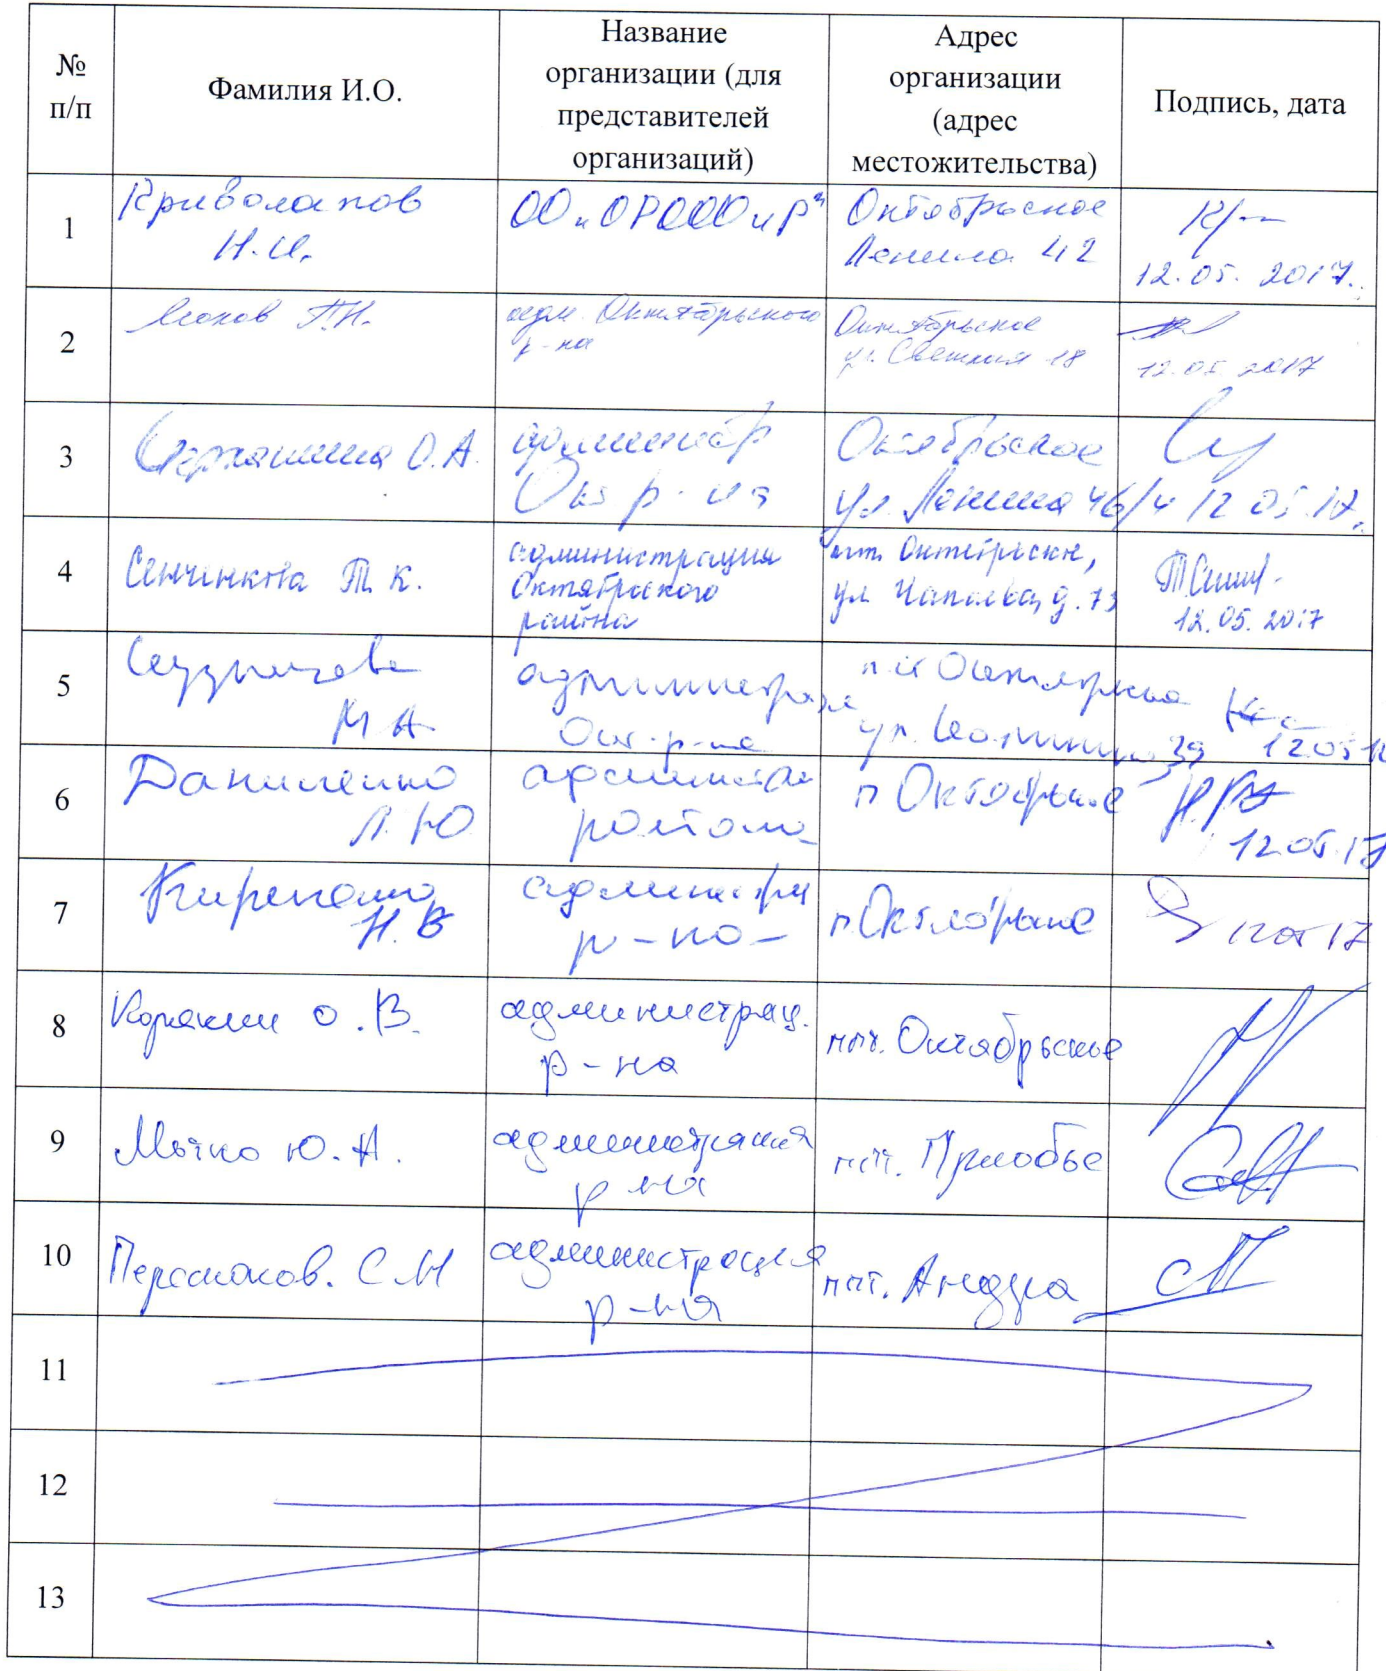 №
п/п
Фамилия И.О.
Название
организации (для
представителей
организаций)
Адрес
организации
(адрес
местожительства)
Подпись, дата
1
Криволапов
Н.И.
ОО „ОРОООиР"
Октябрьское
Ленина 42
12.05. 2017.
2
П.Н.
адм. Октябрьского
р-на
Октябрьское
ул. Светлая 18
12.05 2017
3
О.А.
админстр
Окт р-на
Октябрьское
ул. Ленина 46/4
12 05.17.
4
Сенчинкова Т.К.
администрация
Октябрьского
района
пгт. Октябрьское,
ул. Чапаева, д. 73
12.05.2017
5
М А
Окт. р-на
ул. Калинина 39
12.05.17
6
Даниленко
Л.Ю
района
п Октябрьское
12.05.17
7
Н.В
р-на
п Октябрьское
12 05 17
8
Корякин О.В.
администрац.
р-на
пгт. Октябрьское
9
Мычко Ю.А.
администрация
р-на
пгт. Приобье
10
С М
администрация
р-на
пгт. Андра
11
12
13